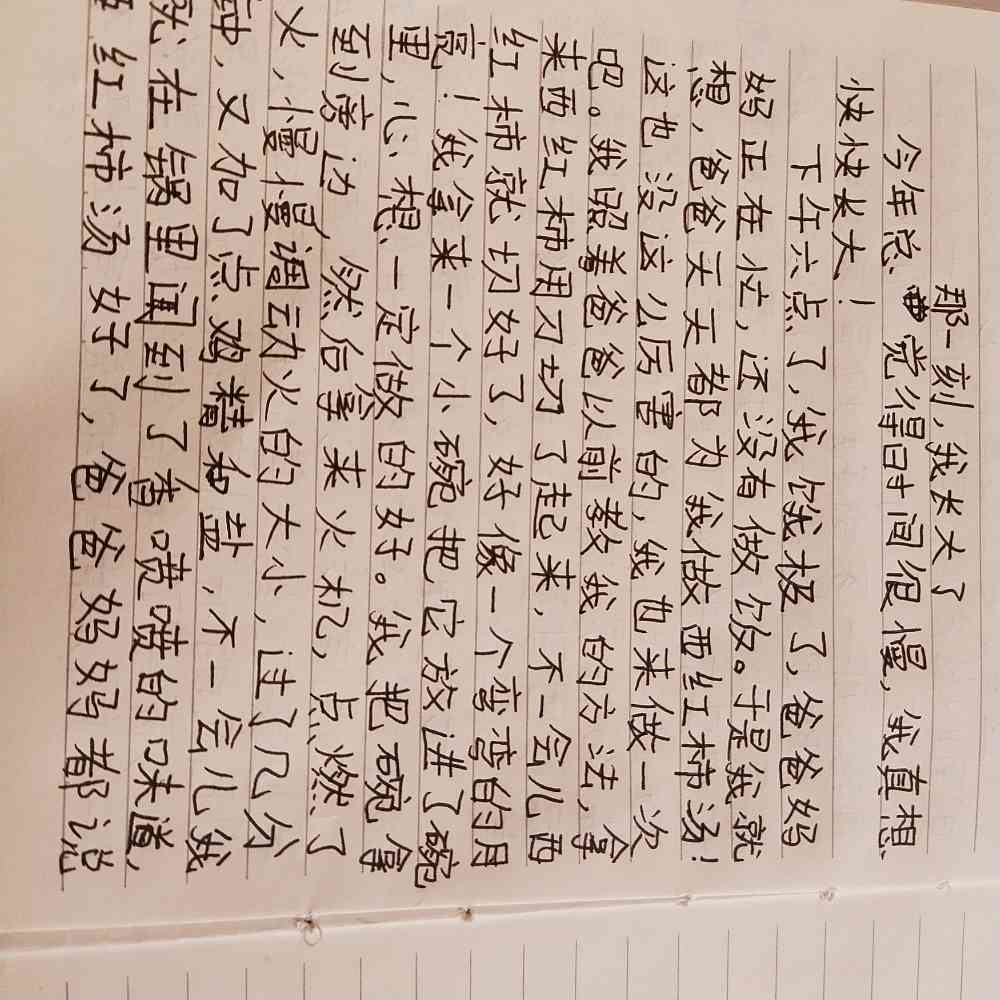 那一刻,我长大了
今年总觉得时间很慢,我真想
快快长大!
下午六点了,我饿极了,爸爸妈
妈正在忙,还没有做饭。于是我就
想,爸爸天天都为我做西红柿汤!
这也没这么厉害的,我也来做一次
吧。我照着爸爸以前教我的方法,拿
来西红柿用刀切了起来,不一会儿西
红柿就切好了,好像一个弯弯的月
亮!我拿来一个小碗把它放进了碗
里,心想一定做的好。我把碗拿
到旁边 然后拿来火机,点燃了
火,慢慢调动火的大小,过了几分
钟,又加了点鸡精和盐,不一会儿我
就在锅里闻到了香喷喷的味道,
红柿汤好了,爸爸妈妈都说